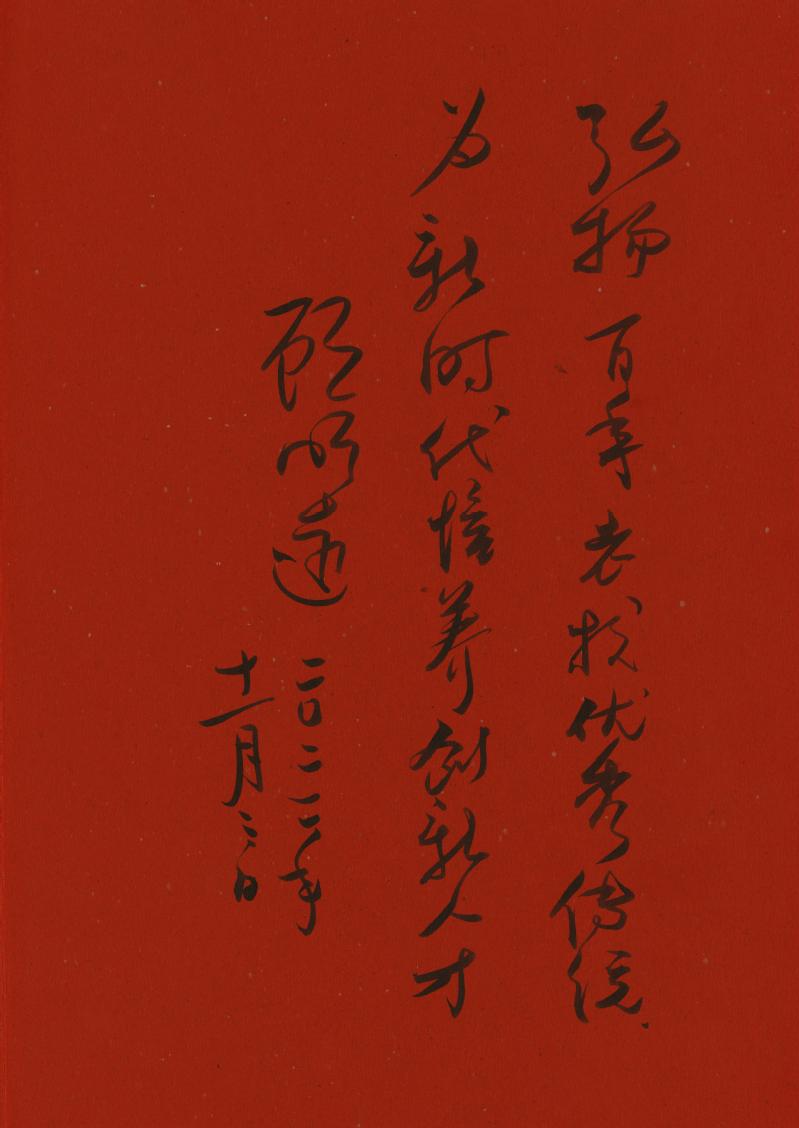 弘扬百年老校优秀传统
为新时代培养创新人才
顾明远
二〇二二年
十一月三日